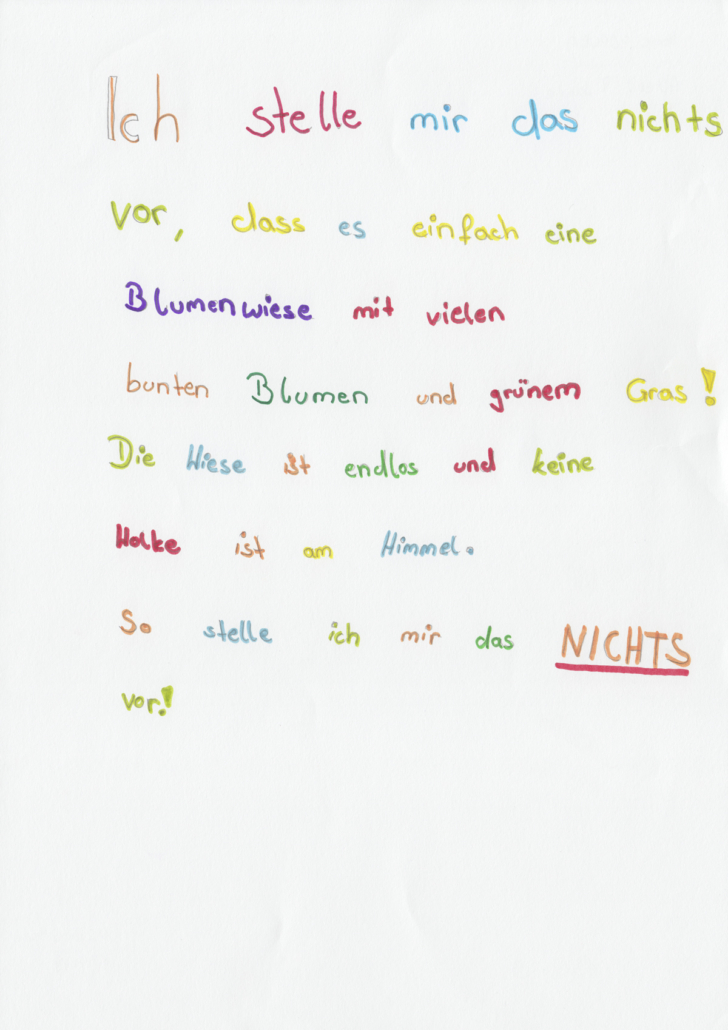 Ich stelle mir das nichts
vor, dass es einfach eine
Blumenwiese mit vielen
bunten Blumen und grünem Gras!
Die Wiese ist endlos und keine
Wolke ist am Himmel.
So stelle ich mir das NICHTS
vor!